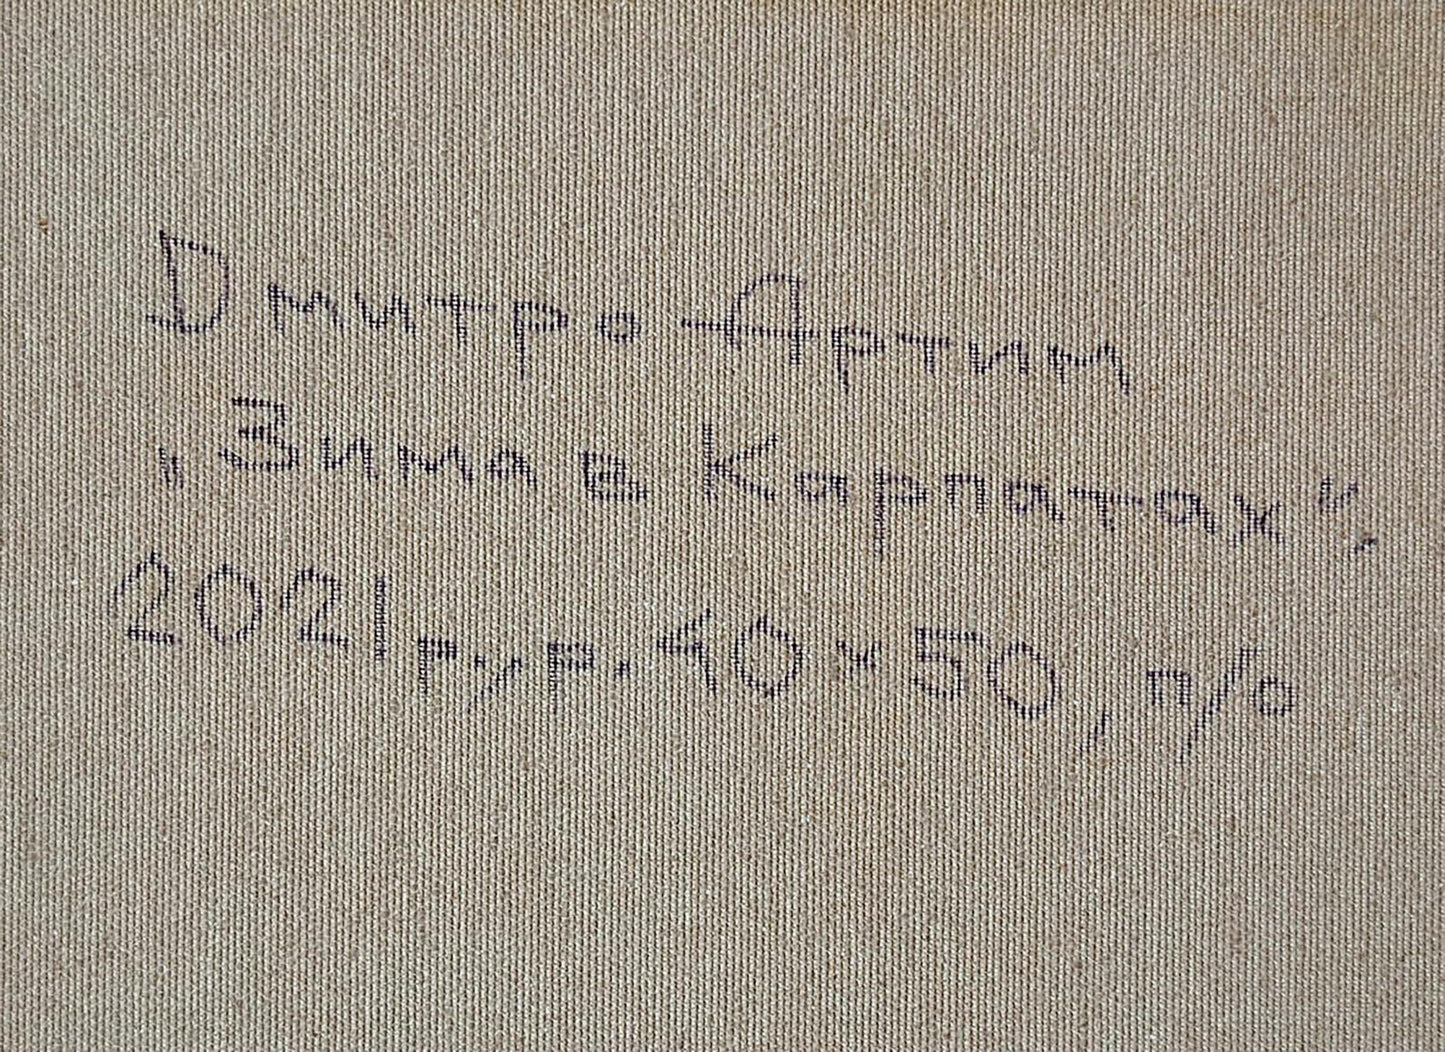 Дмитро Артим
„Зима в Карпатах“.
2021 р, ур. 40х50, п/о